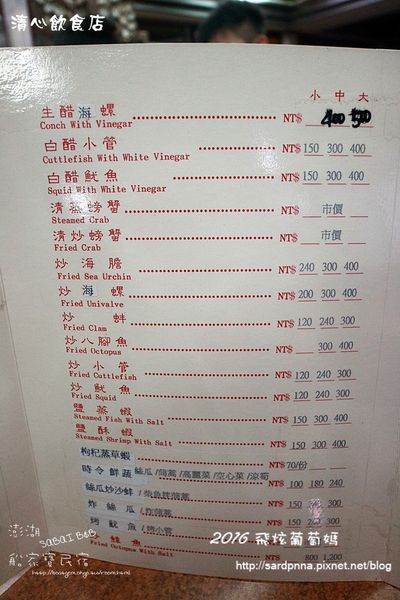 清心飲食店
小 中 大
生醋海螺 NT$ 400
Conch With Vinegar
白醋小管 NT$ 150 300 400
Cuttlefish With White Vinegar
白醋魷魚 NT$ 150 300 400
Squid With White Vinegar
清蒸螃蟹 NT$ 市價
Steamed Crab
清炒螃蟹 NT$ 市價
Fried Crab
炒海膽 NT$ 240 300 400
Fried Sea Urchin
炒海螺 NT$ 200 300 400
Fried Univalve
炒蚌 NT$ 120 240 300
Fried Clam
炒八腳魚 NT$ 300 400
Fried Octopus
炒小管 NT$ 120 240 300
Fried Cuttlefish
炒魷魚 NT$ 120 240 300
Fried Squid
鹽蒸蝦 NT$ 150 300 400
Steamed Fish With Salt
鹽酥蝦 NT$ 150 300 400
Steamed Shrimp With Salt
枸杞蒸草蝦 NT$ 70/份
時令鮮蔬 絲瓜/高麗菜/空心菜/涼筍 NT$ 100 180 240
絲瓜炒沙蚌 NT$ 150
炸絲瓜 NT$ 150
烤魷魚/烤小管 NT$ 150
Fried Octopus With Salt 800 1,200
澎湖
SABAI B&B
船家寶民宿
2016 飛炫葡萄媽
http://sardpnna.pixnet.net/blog